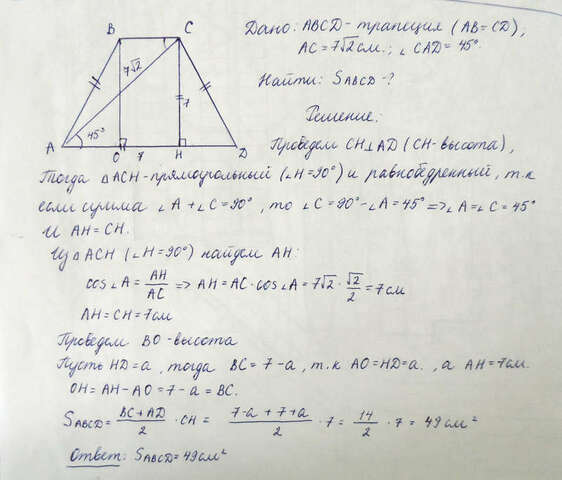 Дано: ABCD - трапеция (AB = CD);
AC = 7√2 см.; ∠CAD = 45°.
Найти: S_ABCD - ?
Решение:
B C
7√2
7
A 45° O 7 H D
Проведем CH⊥AD (CH - высота),
Тогда △ACH - прямоугольный (∠H = 90°) и равнобедренный, т.к
если сумма ∠A + ∠C = 90°, то ∠C = 90° - ∠A = 45° => ∠A = ∠C = 45°
и AH = CH.
Из △ACH (∠H = 90°) найдем AH:
cos∠A = AH/AC => AH = AC · cos∠A = 7√2 · √2/2 = 7 см
AH = CH = 7 см
Проведем BO - высота
Пусть HD = a, тогда BC = 7 - a, т.к AO = HD = a, а AH = 7 см.
OH = AH - AO = 7 - a = BC.
S_ABCD = (BC + AD)/2 · CH = (7 - a + 7 + a)/2 · 7 = 14/2 · 7 = 49 см²
Ответ: S_ABCD = 49 см²